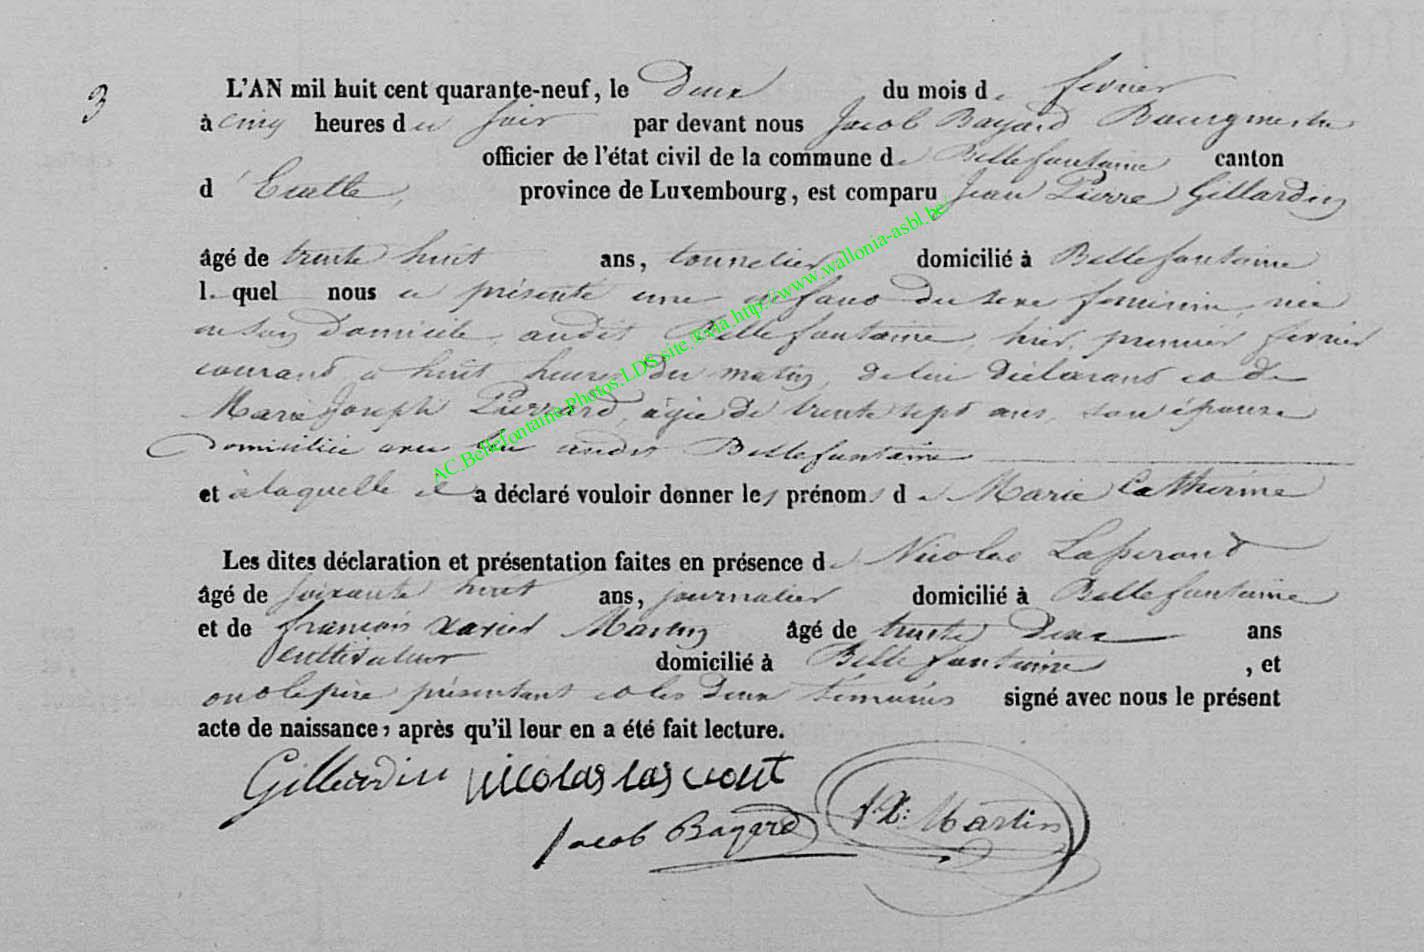 3
L'AN mil huit cent quarante-neuf, le Deux du mois de fevrier
à cinq heures du soir par devant nous Jacob Bayard Bourgmestre
officier de l'état civil de la commune de Bellefontaine canton
d'Etalle, province de Luxembourg, est comparu Jean Pierre Gillardin
âgé de trente huit ans, tonnelier domicilié à Bellefontaine
lequel nous a présenté une enfant du sexe feminin, née
en son Domicile, audit Bellefontaine, hier, premier fevrier
courant, à huit heures du matin, de lui Déclarant et de
Marie Joseph Pierrard, âgée de trente sept ans, son épouse
Domiciliée avec lui audit Bellefontaine
et à laquelle il a déclaré vouloir donner les prénoms de Marie Catherine
Les dites déclaration et présentation faites en présence de Nicolas
âgé de soixante huit ans, journalier domicilié à Bellefontaine
et de françois xavier Martin âgé de trente Deux ans
cultivateur domicilié à Bellefontaine, et
ont le père présentant et les Deux témoins signé avec nous le présent
acte de naissance, après qu'il leur en a été fait lecture.
Gillardin Nicolas
Jacob Bayard fX: Martin
AC.Bellefontaine.Photos.LDS.site. http://www.wallonia-asbl.be/